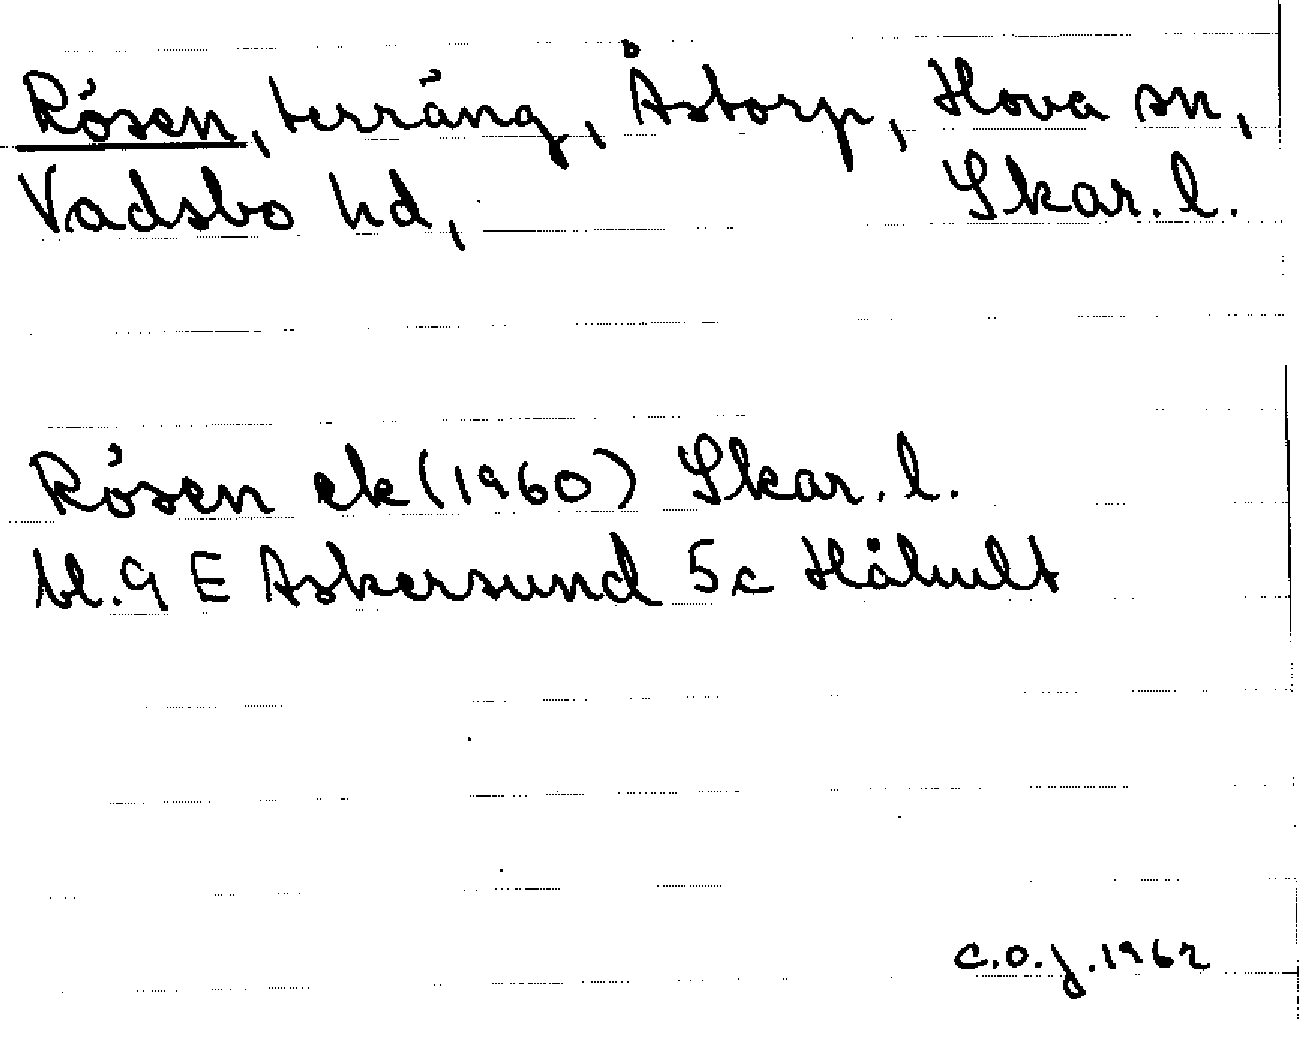 Rösen, terräng, Åstorp, Hova sn,
Vadsbo hd, Skar. l.
Rösen ek (1960) Skar. l.
bl. 9 E Askersund 5c Håhult
C.O.J. 1962